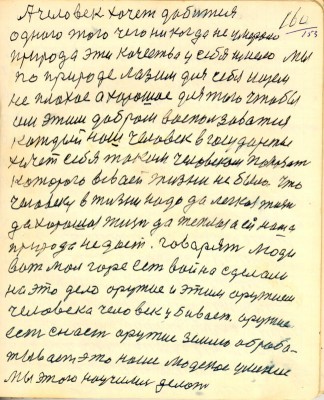 А человек хочет добится
одного этого чего никогда не умерало
природа эти качества у себя имело мы
по природе лазим для себя ищем
не плохое а хорошое для того чтобы
им этим добром воспользоватся
каждый наш человек в государстве
хочет себя таким человеком показат
которого в своей жизни не было. Что
человеку в жизни надо да легкая жизн
да хорошая жизн да теплая а ей нама
природа не дает. говорят люди
вот мол горе ест война сделали
на это дело оружие и этим оружием
человека человек убивает. оружие
ест снаст оружие землю обраба-
тывает это наше людское умение
мы этого научились делат